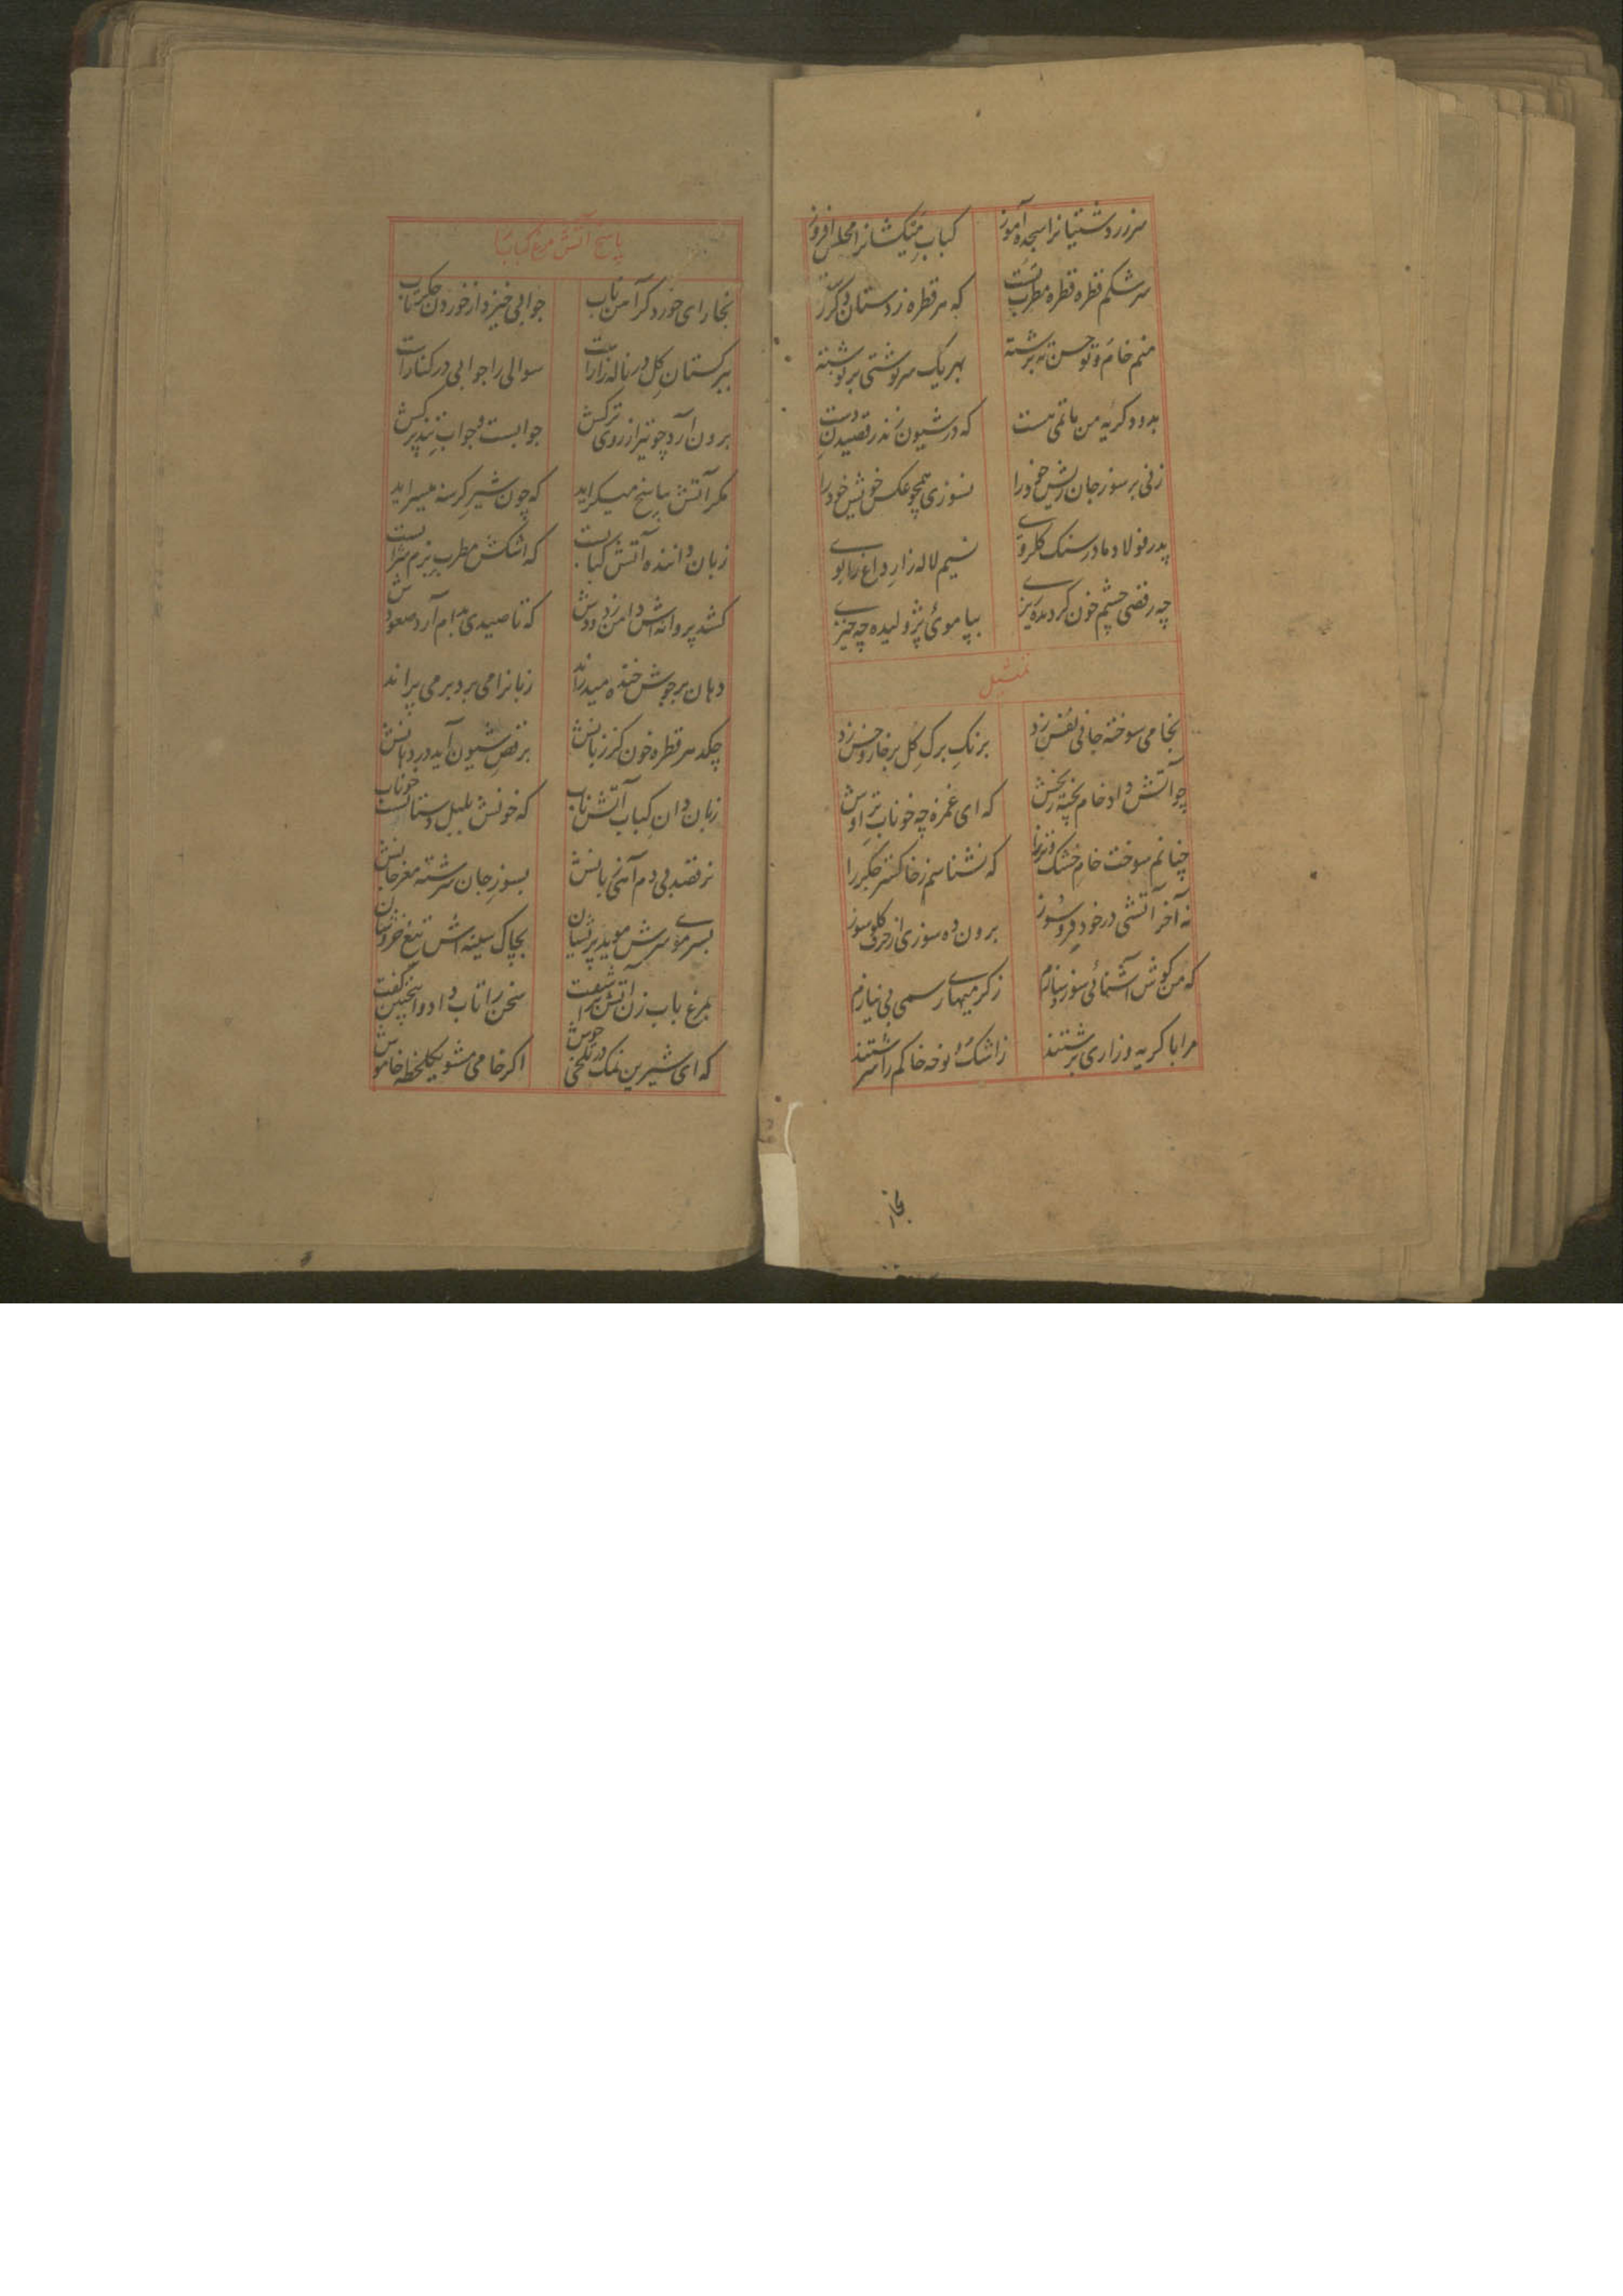 سرزردشتیانرا سجده آموز کباب میکشانرا مجلس افروز
سرشکم قطره قطره مطرب تست که هر قطره زدستان دکر
منم خام و تو حسن ته برشته بهر یک سرنوشتی برنوشته
بدود کریه من ماتمی هست که در شیون زند رقصیدن دست
زنی بر سوز جان ریش خود را نسوزی همچو عکس خویش خود را
پدر فولاد مادر سنک کلروی نسیم لاله زار داغ را بوی
چه رقصی چشم خون کردیده ریزی بپا موی ژولیده چه خیزی
تمثیل
بخامی سوخته جانی نفس زد برنک برک کل بر خار و خس زد
چو آتش داد خام پخته که ای غمزه چه خوناب تراوش
چنانم سوخت خام خشک و تر را که نشناسم ز خاکستر جکر را
نه آخر آتشی در خود فروسوز برون ده سوزی از حرف کلوسوز
که من کوش آشنائی سوز و سازم زکرمیهای رسمی بی نیازم
مرا با کریه و زاری برشتند زاشک نوحه خاکم را سرشتند
بخار
پاسخ آتش مرغ کباب را
بخارای خورد کر آهن ناب جوابی خیزد از خوردن جکرتاب
ببرکستان کل در ناله زارات سوالی را جوابی در کنارات
برون آرد چو تیر از روی ترکش جوابست و جواب
مکر آتش پاسخ میکراید که چون شیر کرسنه میسراید
زبان داننده آتش کبابست که اشکش مطرب بزم شرابست
کشد پروانه اش دامن زدودش که تا صیدی بدام آرد صعودش
دهان بر جوش خنده میدراند زبانرا می برد بر می پراند
چکد هر قطره خون کز زبانش برقص شیون آید در دهانش
زبان دان کباب آتش ناب که خونش بلبل دستانست خوناب
نرقصد بی دم آهنی بانش بسوز جان سرشته مغز جانش
بسر موی سرش موید پریشان بچاک سینه اش تیغ خروشان
بمرغ باب زن آتش برآشفت سخن را تاب داد و اینچنین گفت
که ای شیرین نمک در تلخی جوش اکر خامی مشو یکلحظه خاموش